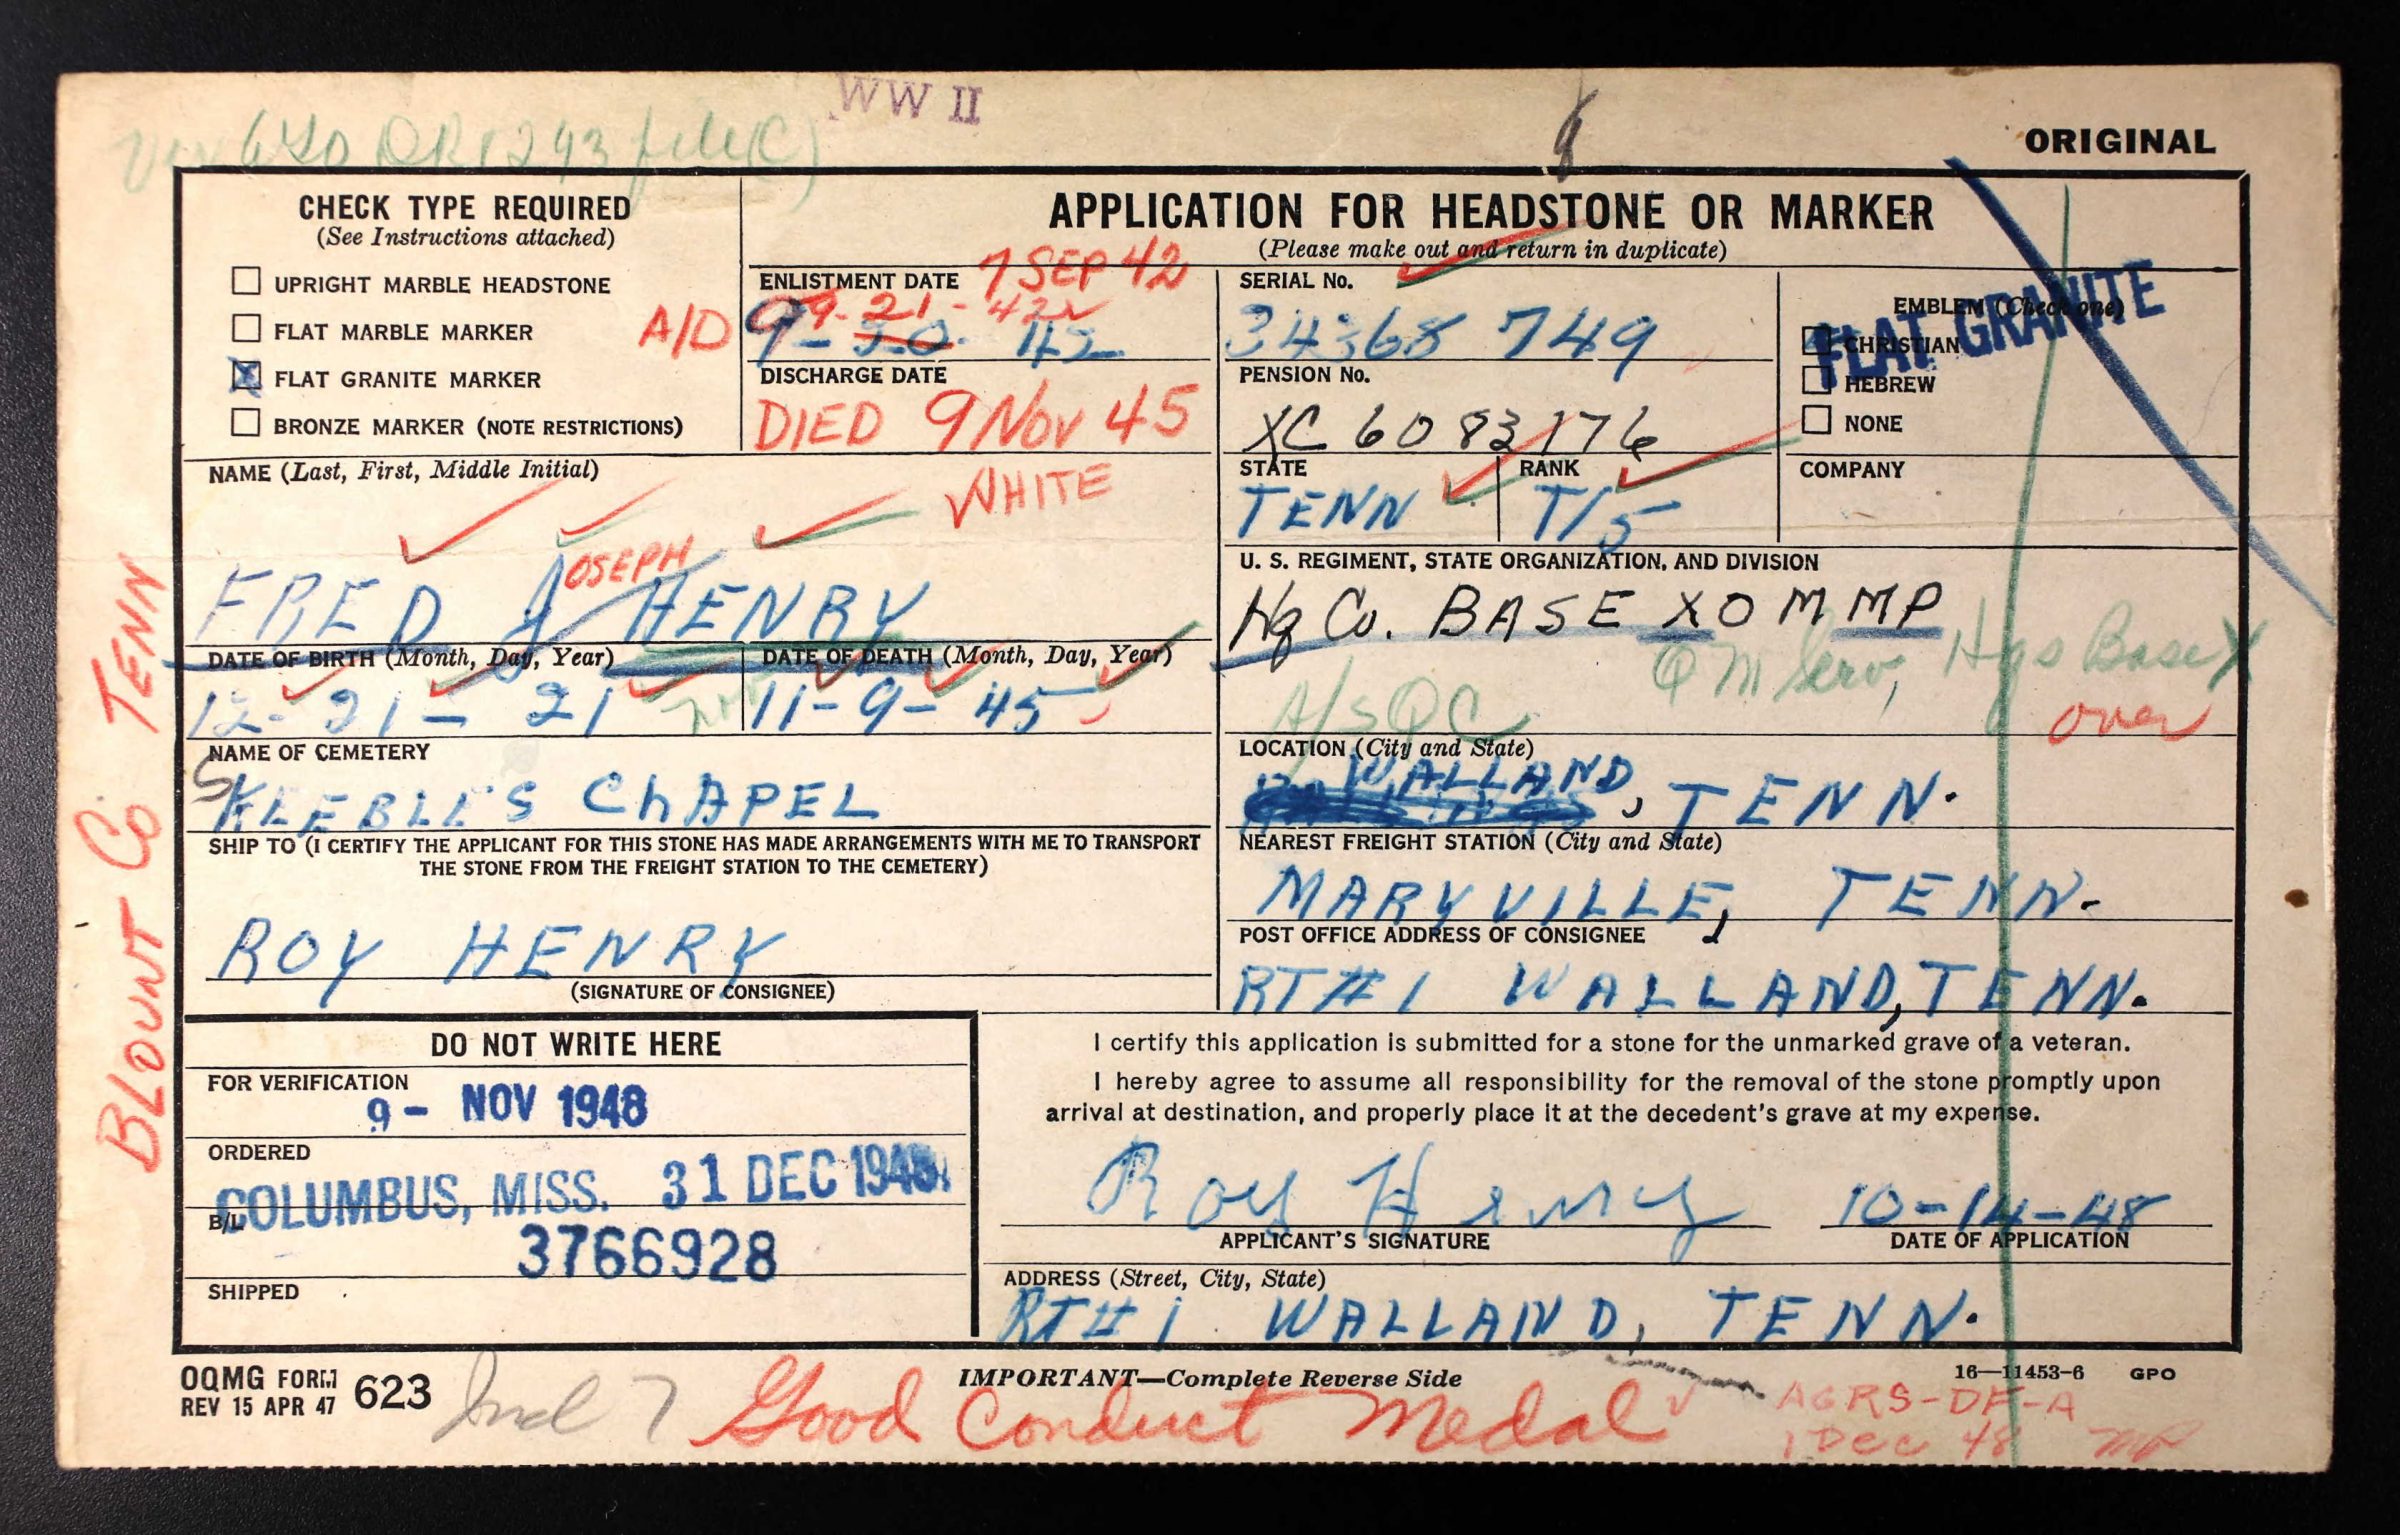 WW II
640 QR 1293 file(C)
ORIGINAL
CHECK TYPE REQUIRED
(See Instructions attached)
UPRIGHT MARBLE HEADSTONE
FLAT MARBLE MARKER
FLAT GRANITE MARKER
BRONZE MARKER (NOTE RESTRICTIONS)
APPLICATION FOR HEADSTONE OR MARKER
(Please make out and return in duplicate)
ENLISTMENT DATE 7 SEP 42
A/D 9-21-42
9-20-42
DISCHARGE DATE
DIED 9 NOV 45
SERIAL No.
34368 749
PENSION No.
XC 6083176
EMBLEM (Check one)
CHRISTIAN
HEBREW
NONE
FLAT GRANITE
NAME (Last, First, Middle Initial)
WHITE
FRED JOSEPH HENRY
STATE
TENN
RANK
T/5
COMPANY
U. S. REGIMENT, STATE ORGANIZATION, AND DIVISION
Hq Co. BASE X O M MP
QM Serv, Hqs Base X
A/SQC
over
DATE OF BIRTH (Month, Day, Year)
12-21-21
DATE OF DEATH (Month, Day, Year)
11-9-45
NAME OF CEMETERY
KEEBLE'S ChAPEL
LOCATION (City and State)
WALLAND, TENN.
SHIP TO (I CERTIFY THE APPLICANT FOR THIS STONE HAS MADE ARRANGEMENTS WITH ME TO TRANSPORT
THE STONE FROM THE FREIGHT STATION TO THE CEMETERY)
ROY HENRY
(SIGNATURE OF CONSIGNEE)
NEAREST FREIGHT STATION (City and State)
MARYVILLE, TENN.
POST OFFICE ADDRESS OF CONSIGNEE
RT#1 WALLAND, TENN.
BLOUNT Co TENN
DO NOT WRITE HERE
FOR VERIFICATION
9- NOV 1948
ORDERED
COLUMBUS, MISS. 31 DEC 1948
B/L
3766928
SHIPPED
I certify this application is submitted for a stone for the unmarked grave of a veteran.
I hereby agree to assume all responsibility for the removal of the stone promptly upon
arrival at destination, and properly place it at the decedent's grave at my expense.
Roy Henry 10-14-48
APPLICANT'S SIGNATURE DATE OF APPLICATION
ADDRESS (Street, City, State)
RT#1 WALLAND, TENN.
OQMG FORM
REV 15 APR 47 623
IMPORTANT—Complete Reverse Side
16—11453-6 GPO
Incl 7 Good Conduct Medal
AGRS-DF-A
1 Dec 48